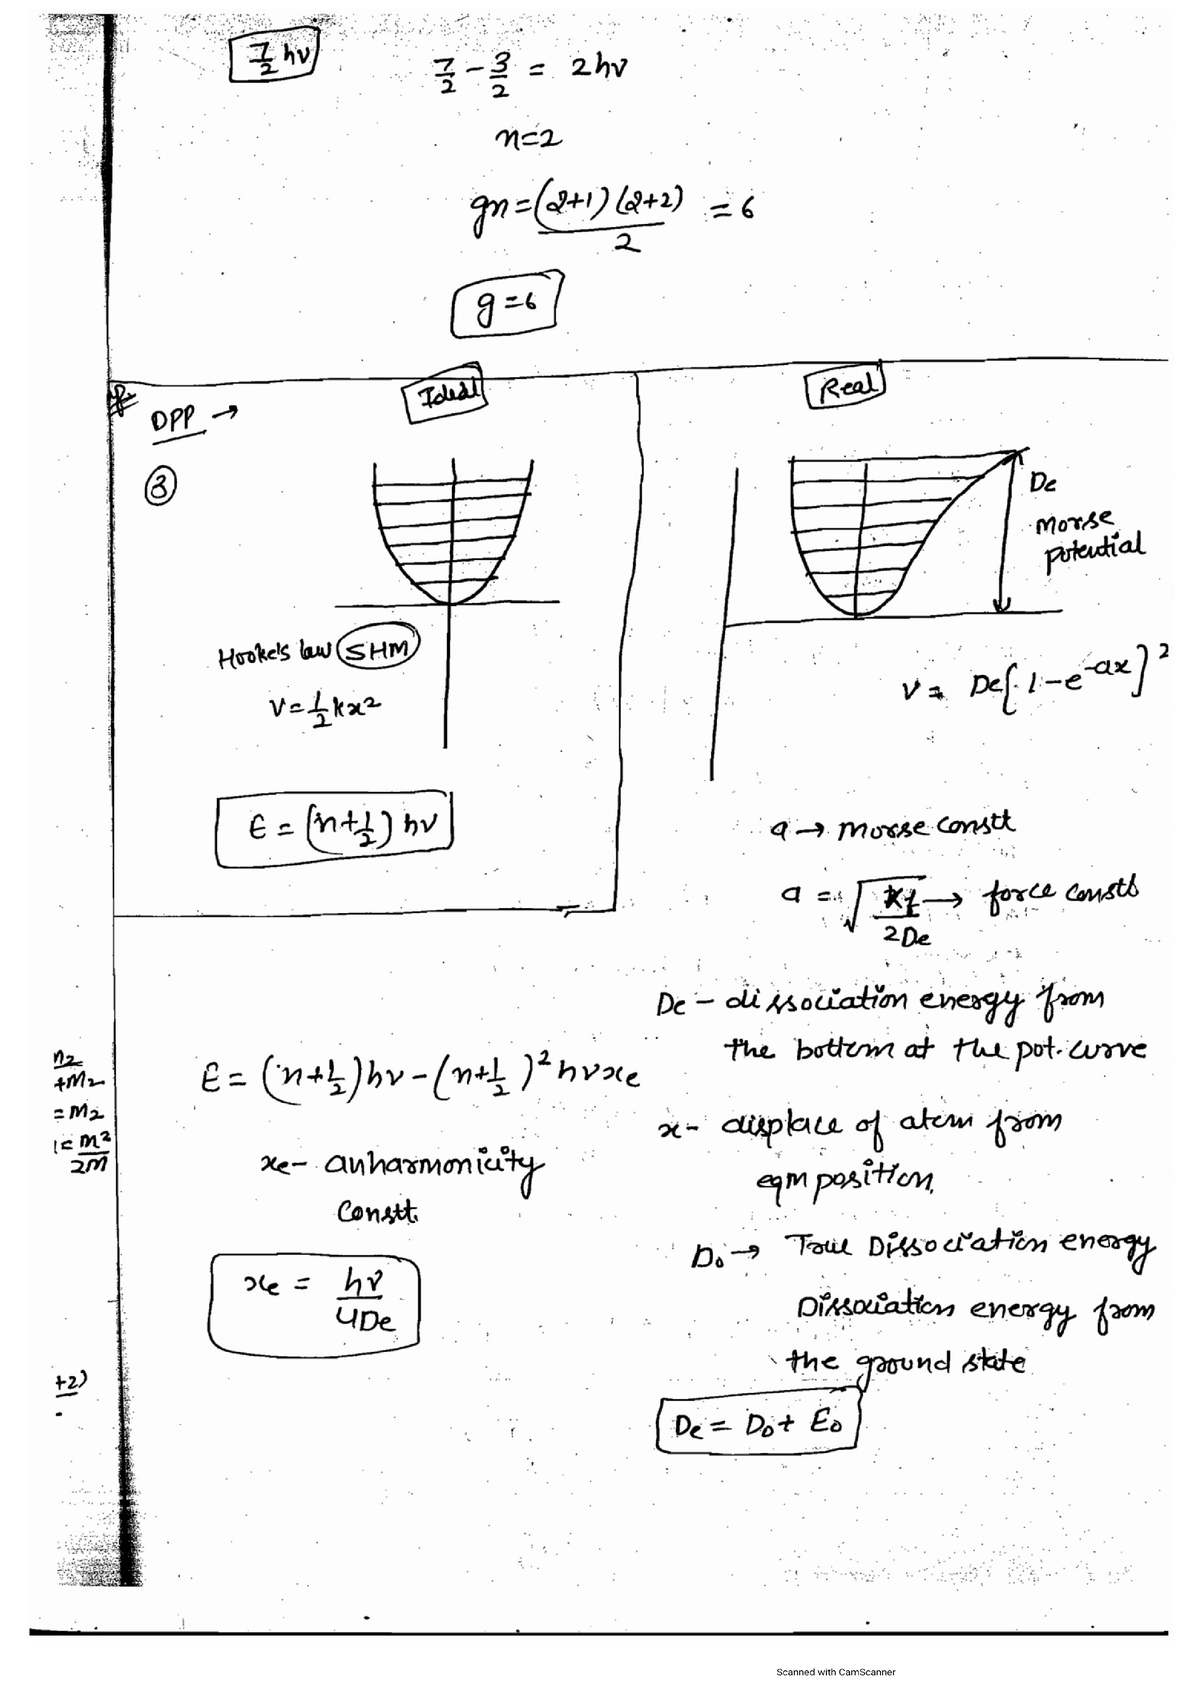 7/2 hν
7/2 - 3/2 = 2hν
n=2
gn = (2+1)(2+2)/2 = 6
g=6
DPP →
Ideal
Real
③
De
morse
potential
Hooke's law SHM
V = 1/2 kx²
V = De[1-e^-ax]²
E = (n+1/2) hν
a → morse constt
a = √(kf/2De) → force constt
De - dissociation energy from
the bottom at the pot. curve
n2
+m2
= m2
m²/2m
E = (n+1/2)hν - (n+1/2)² hνxe
x - displace of atom from
eqm position.
xe - anharmonicity
constt.
D₀ → True Dissociation energy
Dissociation energy from
the ground state
xe = hν/4De
+2)
De = D₀ + E₀
Scanned with CamScanner